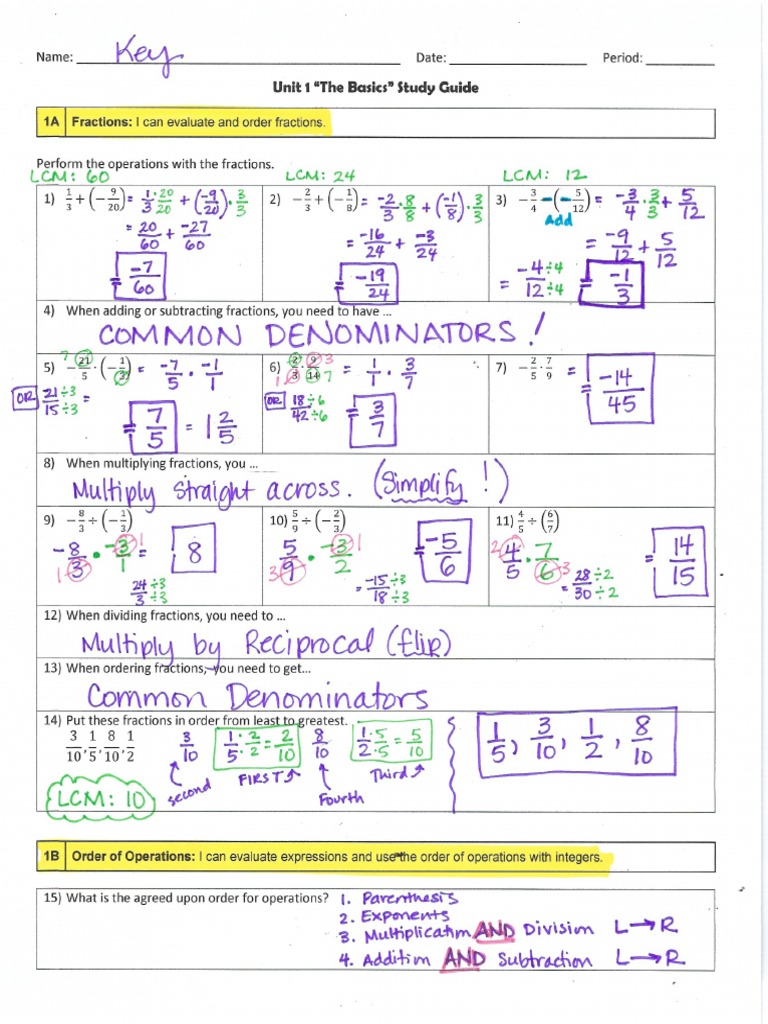 Name: Key Date: Period:
Unit 1 "The Basics" Study Guide
1A Fractions: I can evaluate and order fractions.
Perform the operations with the fractions.
LCM: 60 LCM: 24 LCM: 12
1) 1/3 + (-9/20) = 1/3 · 20/20 + (-9/20) · 3/3
= 20/60 + -27/60
= -7/60
2) -2/3 + (-1/8) = -2/3 · 8/8 + (-1/8) · 3/3
= -16/24 + -3/24
= -19/24
3) -3/4 - (-5/12) = -3/4 · 3/3 + 5/12
Add
= -9/12 + 5/12
= -4÷4/12÷4 = -1/3
4) When adding or subtracting fractions, you need to have ...
COMMON DENOMINATORS!
5) -21/5 · (-1/3) = -7/5 · -1/1
7
OR 21÷3/15÷3 =
= 7/5 = 1 2/5
6) 2/3 · 9/14 = 1/1 · 3/7
1 3
1 7
OR 18÷6/42÷6 = 3/7
7) -2/5 · 7/9 = -14/45
8) When multiplying fractions, you ...
Multiply straight across. (Simplify!)
9) -8/3 ÷ (-1/3)
-8/3 · -3/1 = 8
1 1
24÷3/3÷3
10) 5/9 ÷ (-2/3)
5/9 · -3/2 = -5/6
3 1
= -15÷3/18÷3
11) 4/5 ÷ (6/7)
4/5 · 7/6 = 14/15
2 3
= 28÷2/30÷2
12) When dividing fractions, you need to ...
Multiply by Reciprocal (flip)
13) When ordering fractions, you need to get...
Common Denominators
14) Put these fractions in order from least to greatest.
3/10, 1/5, 8/10, 1/2
3/10 1/5 · 2/2 = 2/10 8/10 1/2 · 5/5 = 5/10
second FIRST Fourth Third
1/5, 3/10, 1/2, 8/10
LCM: 10
1B Order of Operations: I can evaluate expressions and use the order of operations with integers.
15) What is the agreed upon order for operations? 1. Parenthesis
2. Exponents
3. Multiplication AND Division L→R
4. Addition AND Subtraction L→R